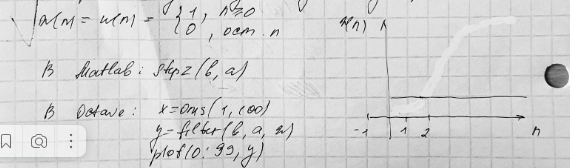 x[n] = u[n] = { 1, n ≥ 0
0, ост. n
В Matlab: stepz(b, a)
В Octave: x=ones(1,100)
y=filter(b, a, x)
plot(0:99, y)
u(n)
-1 1 2 n